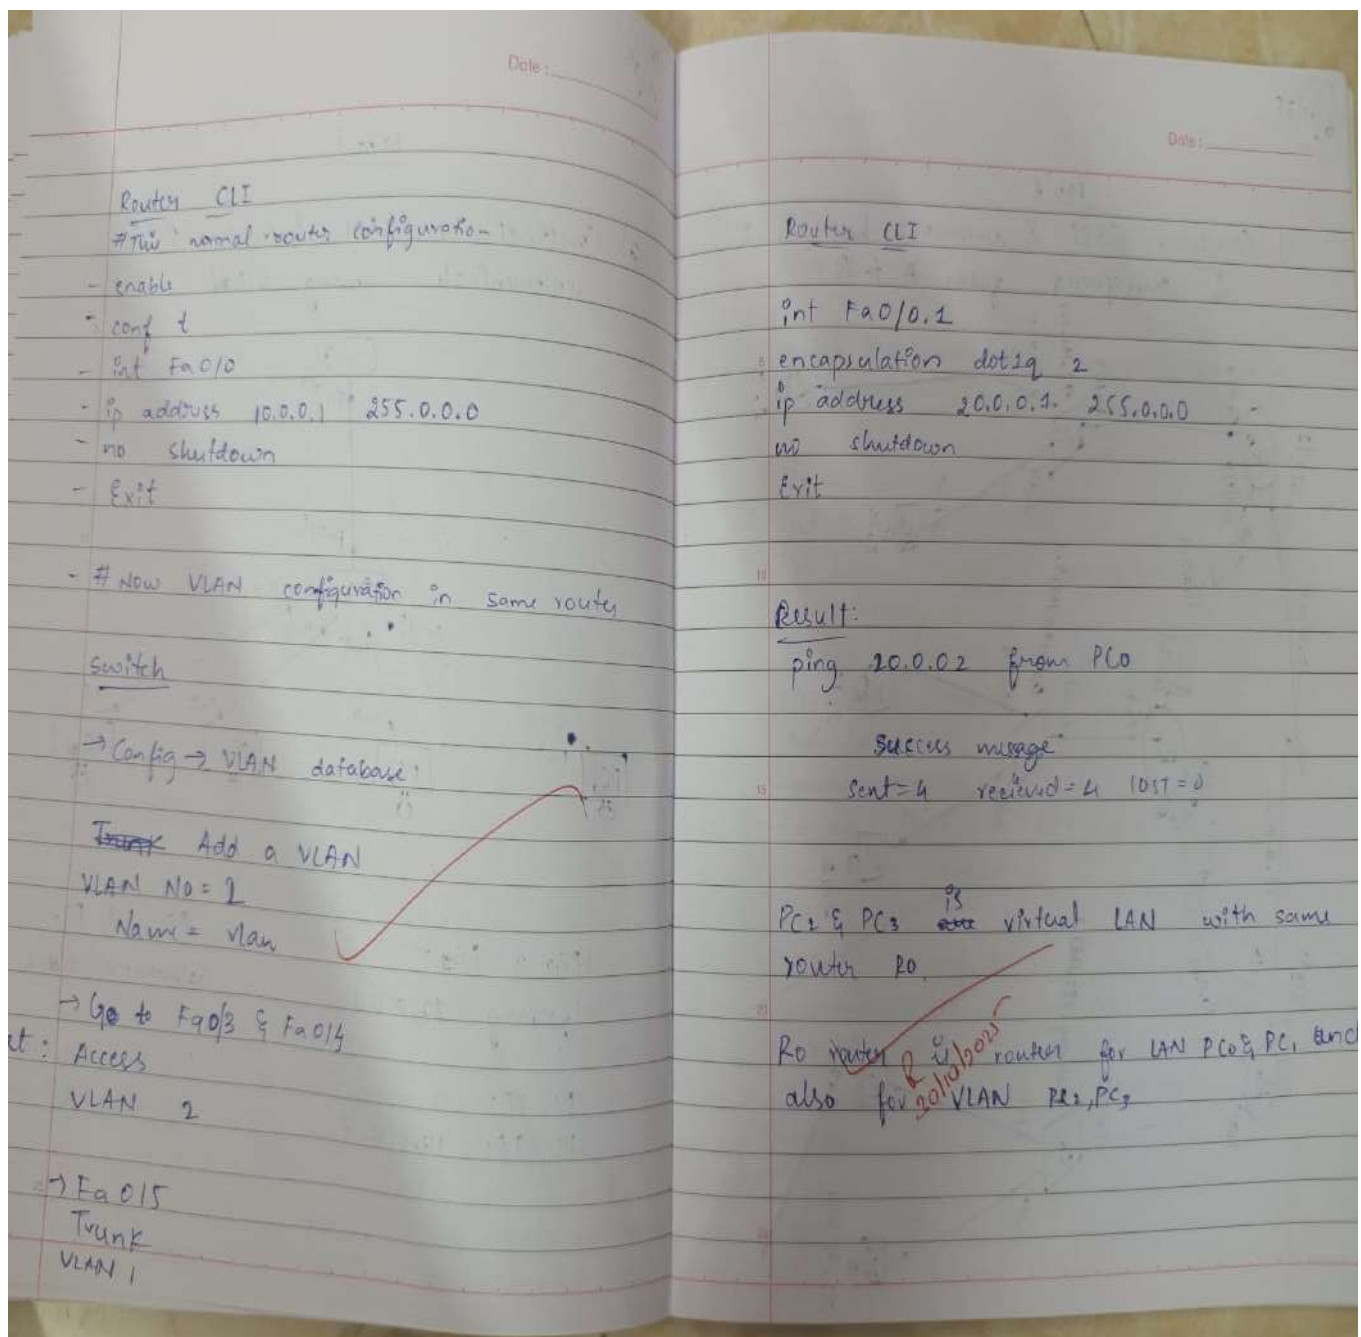 Date :
Router CLI
# This normal router configuration
- enable
- conf t
- int Fa 0/0
- ip address 10.0.0.1 255.0.0.0
- no shutdown
- Exit
- # Now VLAN configuration in same router
Switch
→ Config → VLAN database:
Add a VLAN
VLAN No = 2
Name = vlan
→ Go to Fa0/3 & Fa 0/4
et : Access
VLAN 2
→ Fa 0/5
Trunk
VLAN 1
Date :
Router CLI
int Fa 0/0.1
5 encapsulation dot1q 2
ip address 20.0.0.1. 255.0.0.0
no shutdown
Exit
10
Result:
ping 20.0.02 from PC0
success message
15 Sent=4 recieved=4 lost=0
is
PC2 & PC3 virtual LAN with same
router R0.
R0 router is router for LAN PC0 & PC1 and
30/10/2025
also for VLAN PC2, PC3